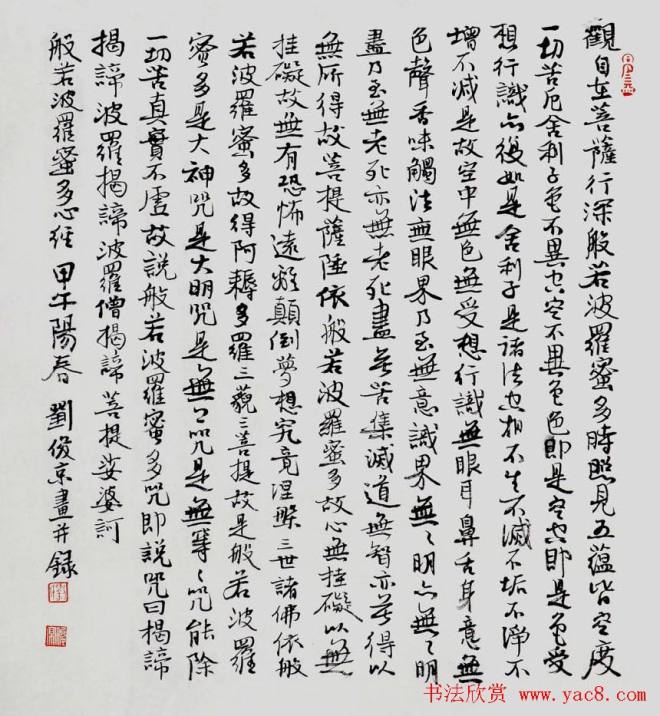 觀自在菩薩行深般若波羅蜜多時照見五蘊皆空度
一切苦厄舍利子色不異空空不異色色即是空空即是色受
想行識亦復如是舍利子是諸法空相不生不滅不垢不淨不
增不減是故空中無色無受想行識無眼耳鼻舌身意無
色聲香味觸法無眼界乃至無意識界無〻明亦無〻明
盡乃至無老死亦無老死盡無苦集滅道無智亦無得以
無所得故菩提薩埵依般若波羅蜜多故心無挂礙以無
挂礙故無有恐怖遠離顛倒夢想究竟涅槃三世諸佛依般
若波羅蜜多故得阿耨多羅三藐三菩提故是般若波羅
蜜多是大神咒是大明咒是無上咒是無等〻咒能除
一切苦真實不虛故說般若波羅蜜多咒即說咒曰揭諦
揭諦波羅揭諦波羅僧揭諦菩提娑婆訶
般若波羅蜜多心經 甲午陽春 劉俊京畫并錄
书法欣赏 www.yac8.com